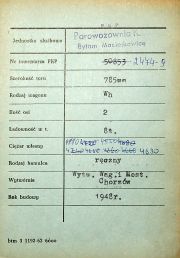 P K P
Jednostka służbowa
Parowozownia Kl.
Bytom Maciejkowice
Nr inwentarza PKP 50853 2474-9
Szerokość toru 785mm
Rodzaj wagonu Wh
Ilość osi 2
Ładowność w t. 8t.
Ciężar własny
4630
Rodzaj hamulca ręczny
Wytwórnia Wytw. Wag.i Most.
Chorzów
Rok budowy 1948r.